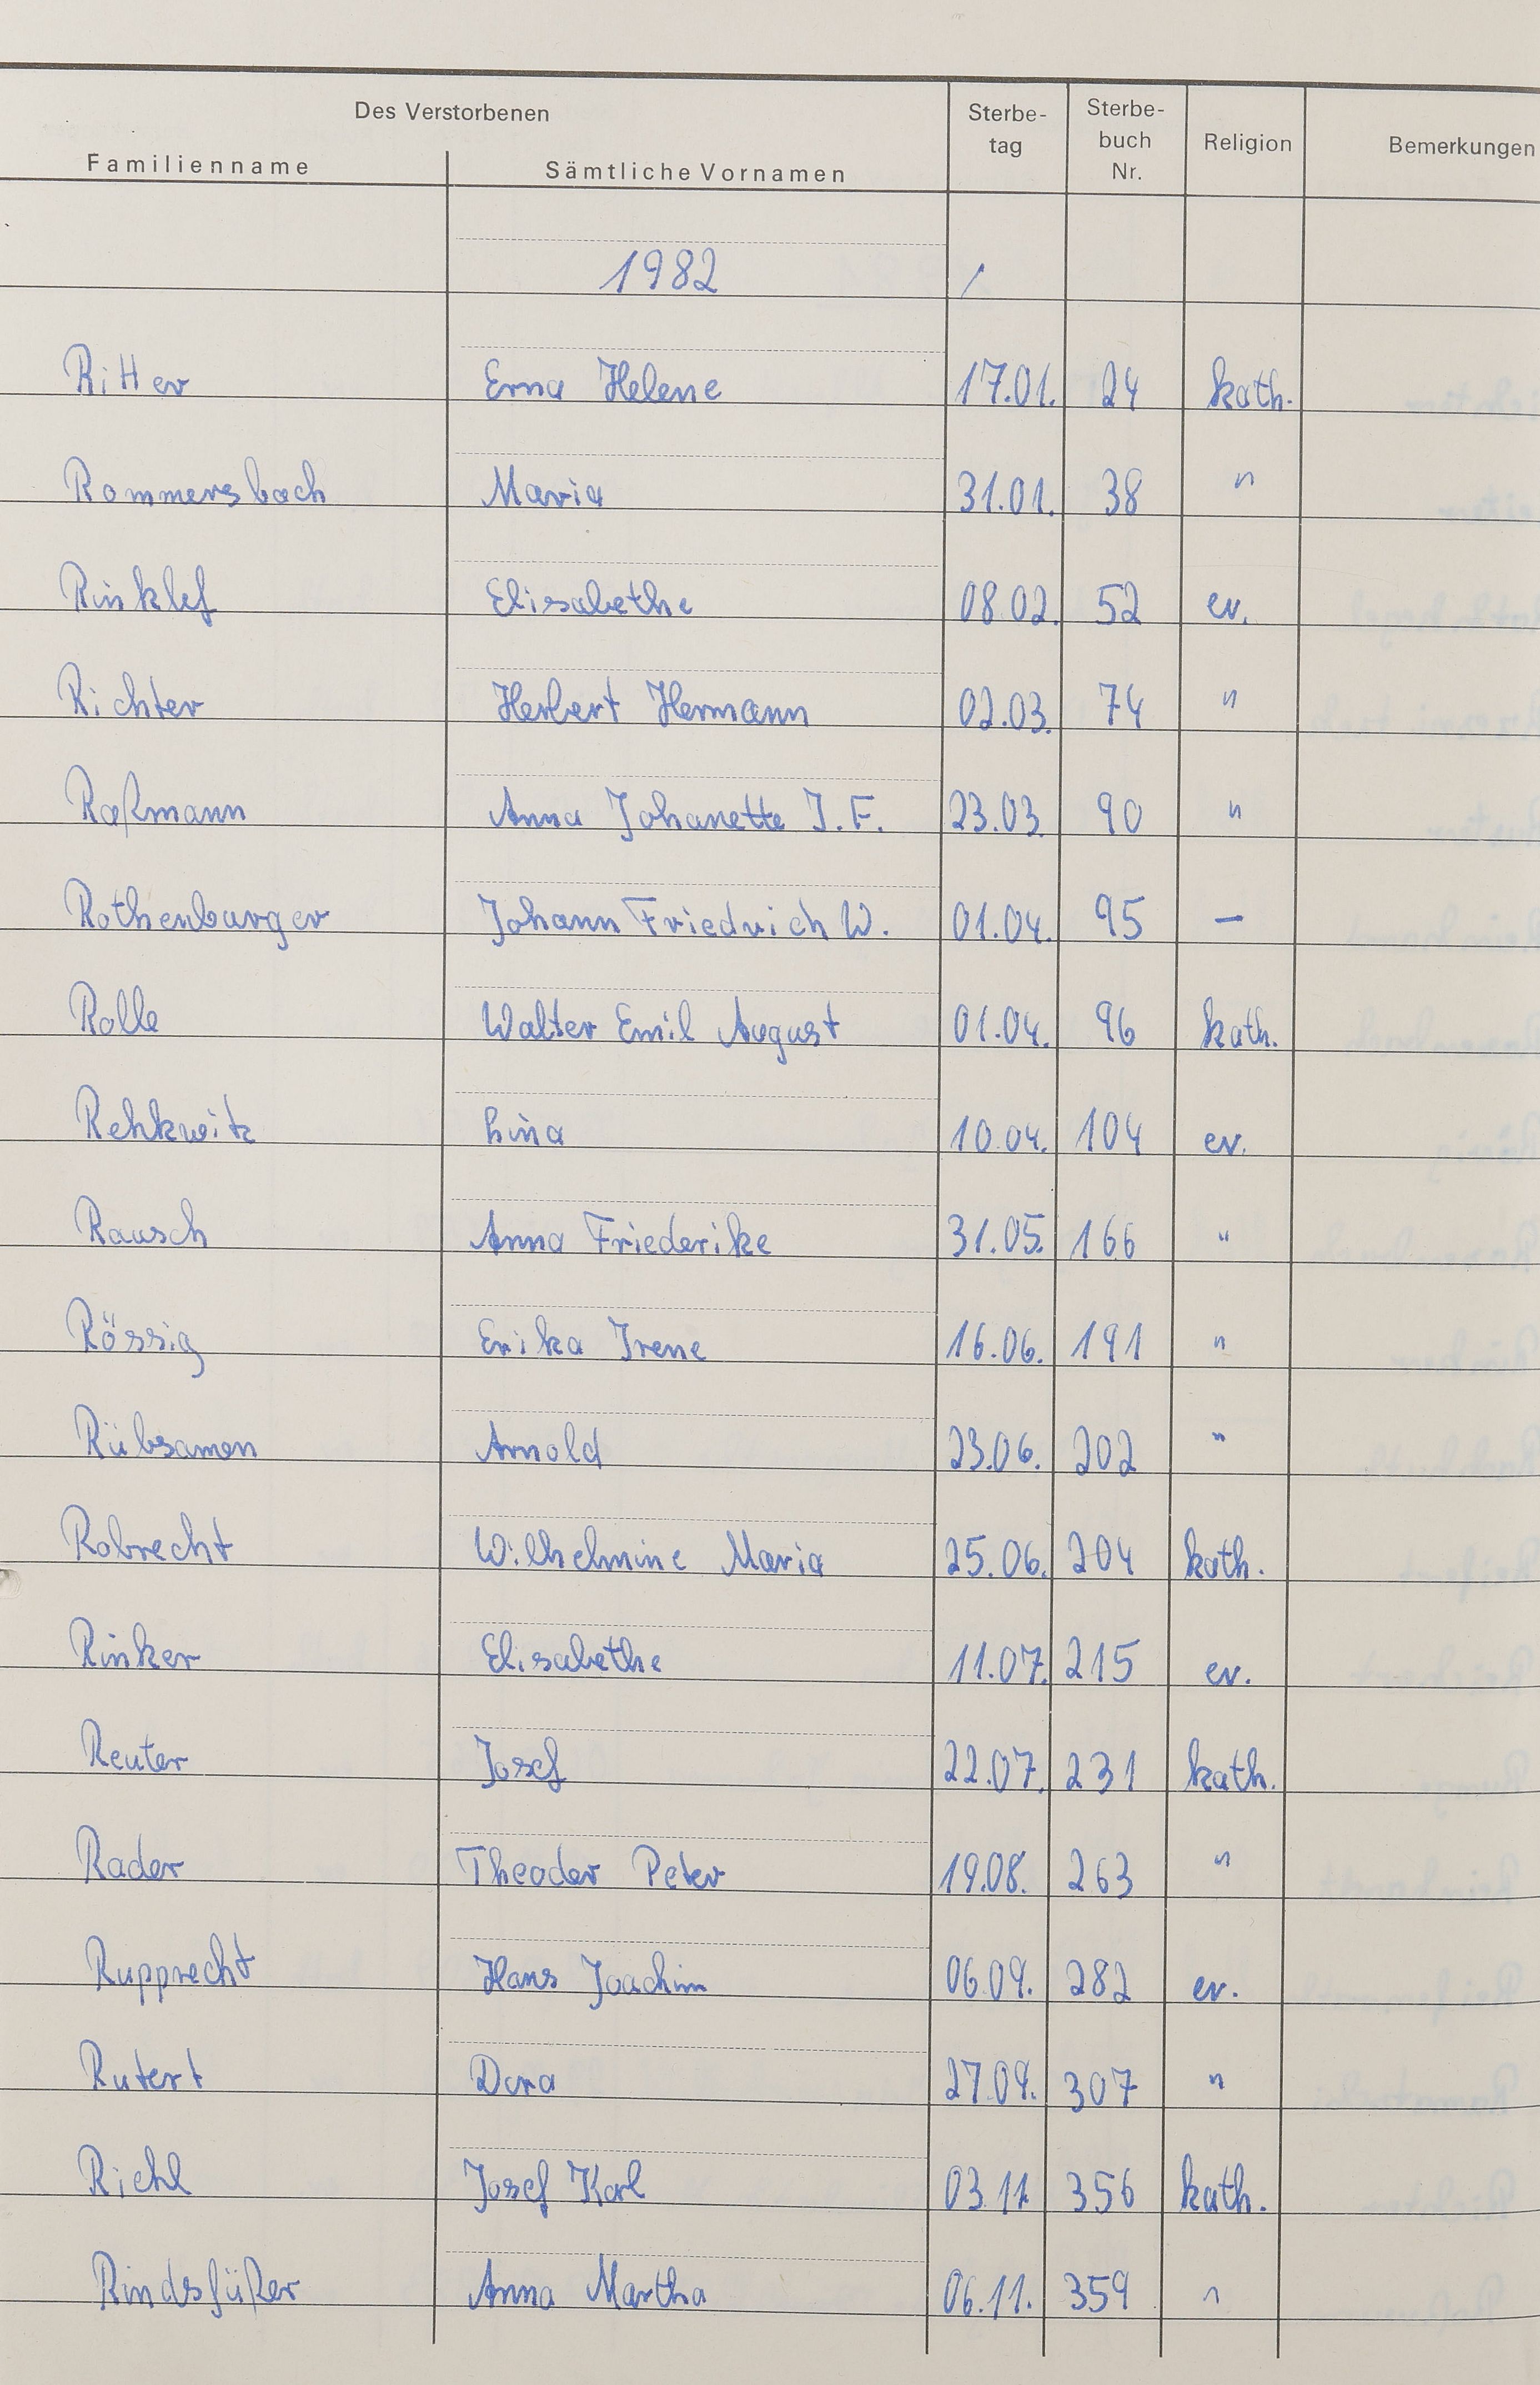 Des Verstorbenen
Familienname Sämtliche Vornamen Sterbe-tag Sterbe-buch Nr. Religion Bemerkungen
1982 /
Ritter Erna Helene 17.01. 24 kath.
Rommersbach Maria 31.01. 38 "
Rinklef Elisabethe 08.02. 52 ev.
Richter Herbert Hermann 02.03. 74 "
Roßmann Anna Johanette J.F. 23.03. 90 "
Rothenburger Johann Friedrich W. 01.04. 95 —
Rolle Walter Emil August 01.04. 96 kath.
Rehkwitz Lina 10.04. 104 ev.
Rausch Anna Friederike 31.05. 166 "
Rössig Erika Irene 16.06. 191 "
Rübsamen Arnold 23.06. 202 "
Robrecht Wilhelmine Maria 25.06. 204 kath.
Rinker Elisabethe 11.07. 215 ev.
Reuter Josef 22.07. 231 kath.
Rader Theodor Peter 19.08. 263 "
Rupprecht Hans Joachim 06.09. 282 ev.
Rutert Dora 27.09. 307 "
Riehl Josef Karl 03.11. 356 kath.
Rindsfüßer Anna Martha 06.11. 359 "